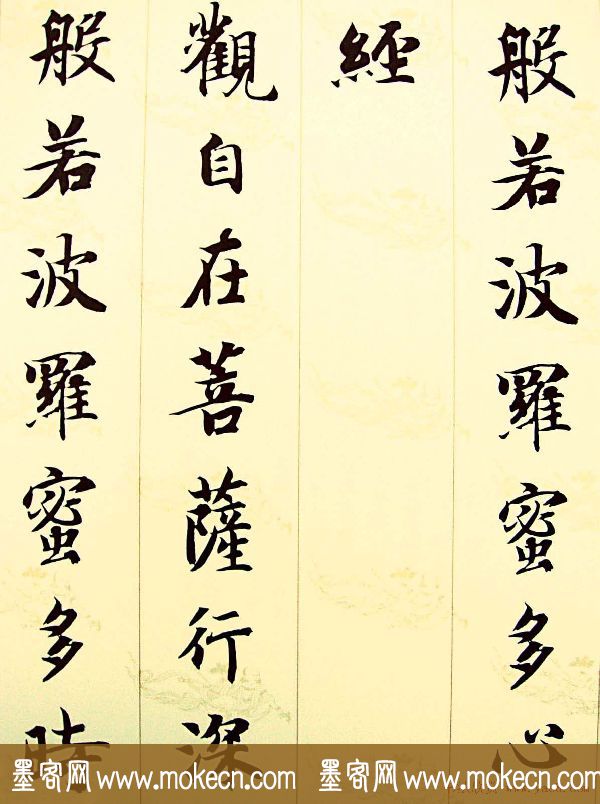 般若波羅蜜多心
經
觀自在菩薩行深
般若波羅蜜多時
墨客网 www.mokecn.com 墨客网 www.mokecn.com